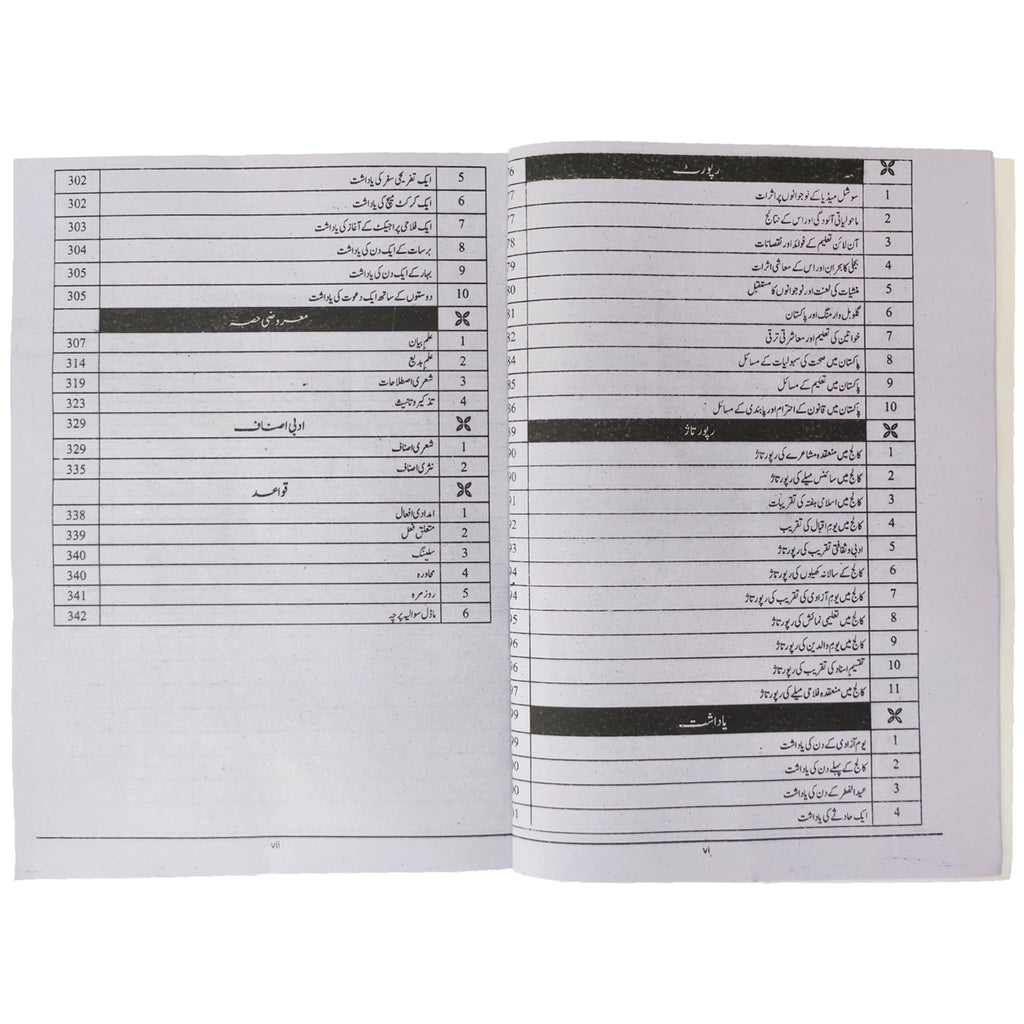 رپورٹ 76
1 سوشل میڈیا کے نوجوانوں پر اثرات 77
2 ماحولیاتی آلودگی اور اس کے نتائج 77
3 آن لائن تعلیم کے فوائد اور نقصانات 78
4 بجلی کا بحران اور اس کے معاشی اثرات 79
5 منشیات کی لعنت اور نوجوانوں کا مستقبل 80
6 گلوبل وارمنگ اور پاکستان 81
7 خواتین کی تعلیم اور معاشرتی ترقی 82
8 پاکستان میں صحت کی سہولیات کے مسائل 84
9 پاکستان میں تعلیم کے مسائل 85
10 پاکستان میں قانون کے احترام اور پابندی کے مسائل 86
رپورتاژ 89
1 کالج میں منعقدہ مشاعرے کی رپورتاژ 90
2 کالج میں سائنس میلے کی رپورتاژ 90
3 کالج میں اسلامی ہفتہ کی تقریبات 91
4 کالج میں یوم اقبال کی تقریب 92
5 ادبی و ثقافتی تقریب کی رپورتاژ 93
6 کالج کے سالانہ کھیلوں کی رپورتاژ 94
7 کالج میں یوم آزادی کی تقریب کی رپورتاژ 94
8 کالج میں تعلیمی نمائش کی رپورتاژ 95
9 کالج میں یوم والدین کی رپورتاژ 96
10 تقسیم اسناد کی تقریب کی رپورتاژ 96
11 کالج میں منعقدہ فلاحی میلے کی رپورتاژ 97
یاداشت 99
1 یوم آزادی کے دن کی یاداشت 99
2 کالج کے پہلے دن کی یاداشت 00
3 عید الفطر کے دن کی یاداشت 00
4 ایک حادثے کی یاداشت 01
vi
5 ایک تفریحی سفر کی یاداشت 302
6 ایک کرکٹ میچ کی یاداشت 302
7 ایک فلاحی پراجیکٹ کے آغاز کی یاداشت 303
8 برسات کے ایک دن کی یاداشت 304
9 بہار کے ایک دن کی یاداشت 305
10 دوستوں کے ساتھ ایک دعوت کی یاداشت 305
معروضی حصہ
1 علم بیان 307
2 علم بدیع 314
3 شعری اصطلاحات 319
4 تذکیر و تانیث 323
ادبی اصناف 329
1 شعری اصناف 329
2 نثری اصناف 335
قواعد
1 امدادی افعال 338
2 متعلق فعل 339
3 سلینگ 340
4 محاورہ 340
5 روزمرہ 341
6 ماڈل سوالیہ پرچہ 342
vii